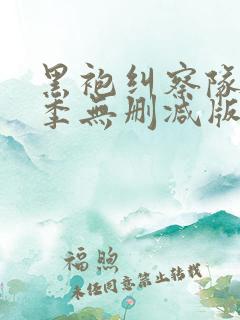 黑袍纠察队
季無删减版
福煦
未经同意禁止转载